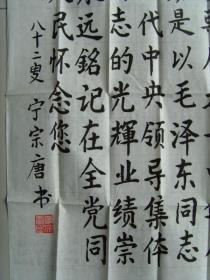 是以毛泽东同志
代中央领导集体
志的光輝业绩崇
远銘记在全党同
民怀念您
八十二叟 宁宗唐书